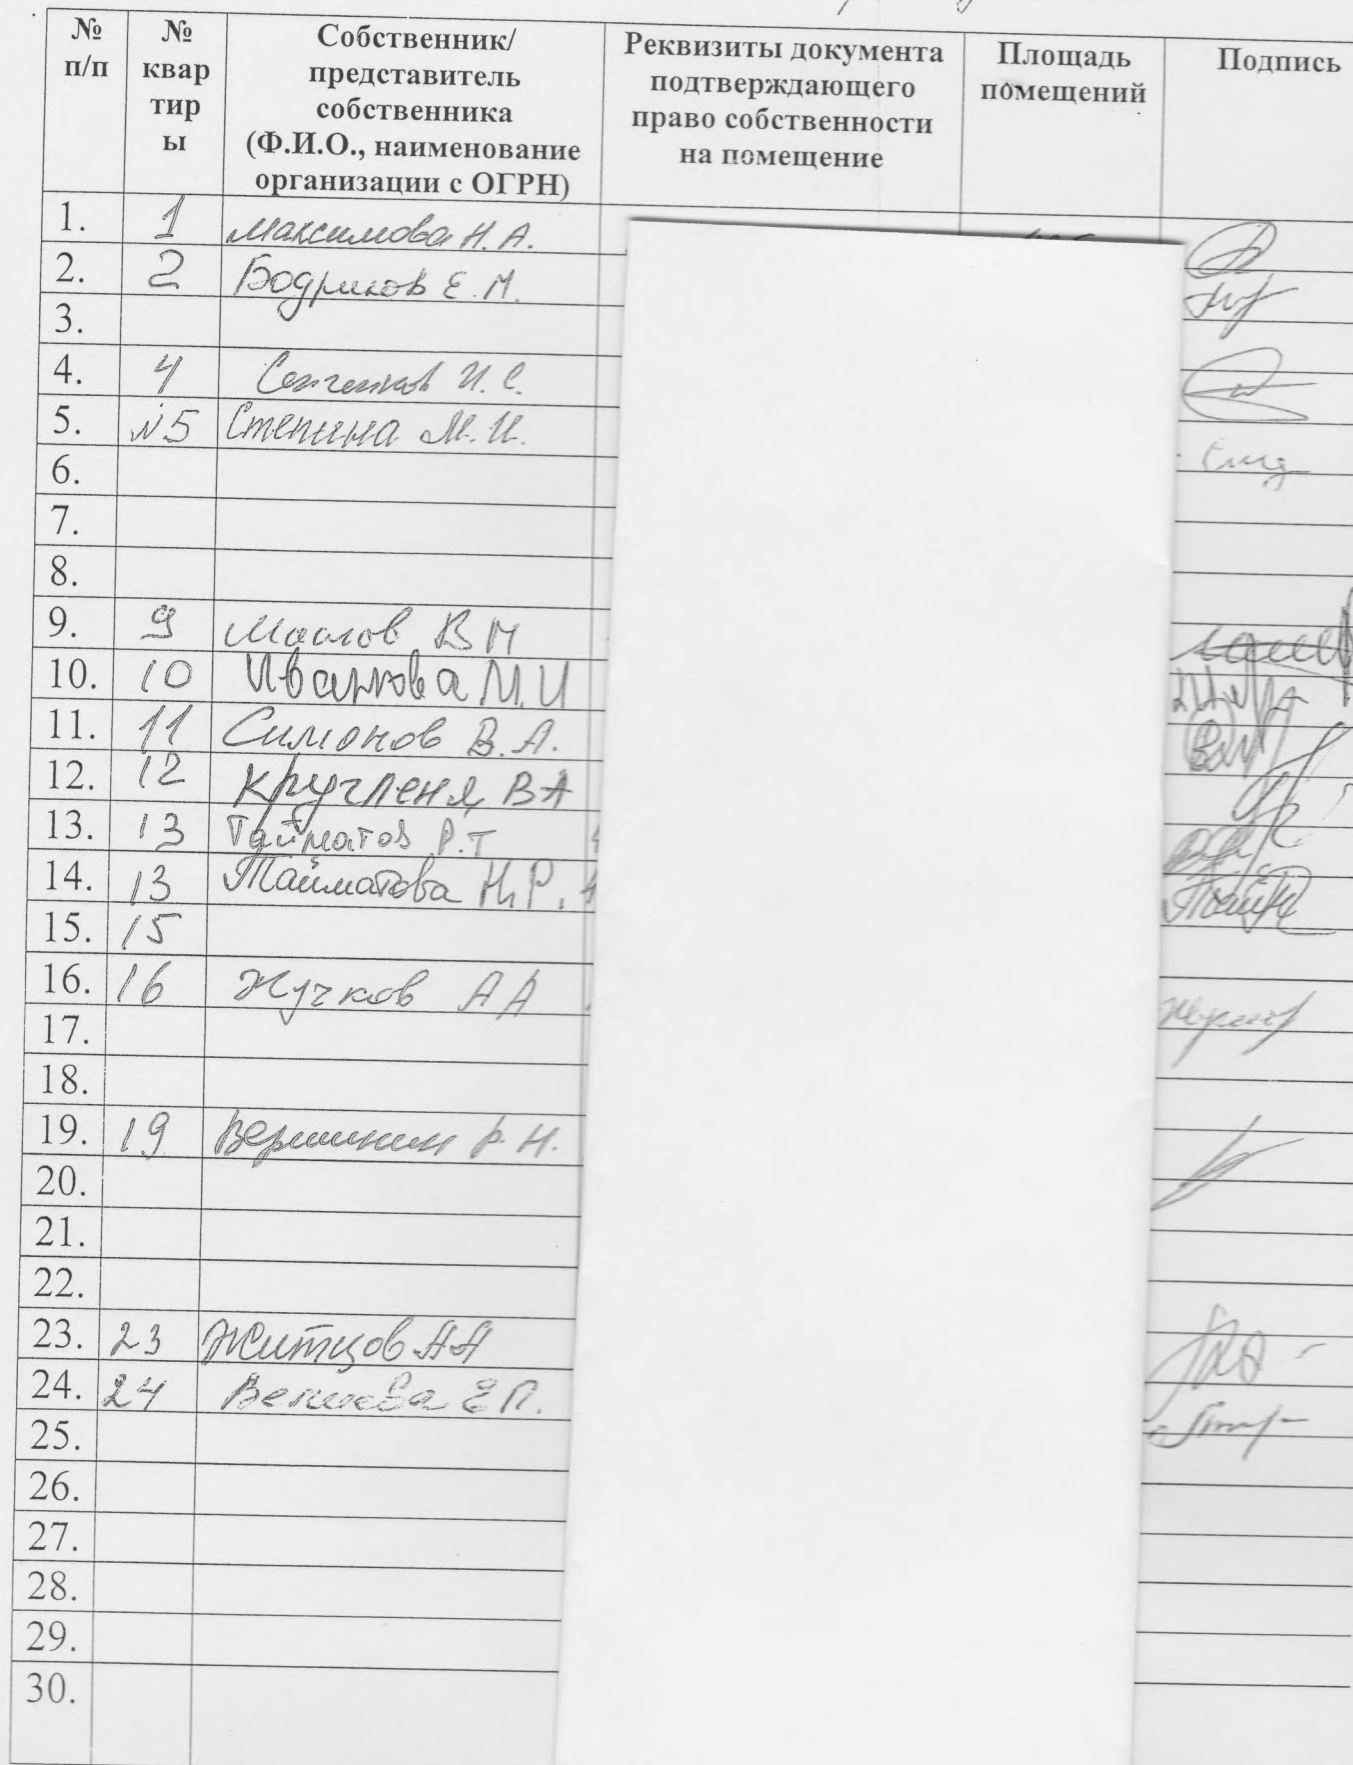 № п/п № квартиры Собственник/ представитель собственника (Ф.И.О., наименование организации с ОГРН) Реквизиты документа подтверждающего право собственности на помещение Площадь помещений Подпись
1. 1 Максимова Н.А.
2. 2 Бодриков Е.М.
3.
4. 4 И.С.
5. №5 Степина М.И.
6.
7.
8.
9. 9 Маслов В М
10. 10 Иванкова М.И
11. 11 Симонов В.А.
12. 12 Кругленя ВА
13. 13 Тайматов Р.Т
14. 13 Тайматова Н.Р.
15. 15
16. 16 Жучков А А
17.
18.
19. 19 Вершинин Р.Н.
20.
21.
22.
23. 23 Житцов АА
24. 24 Е П.
25.
26.
27.
28.
29.
30.